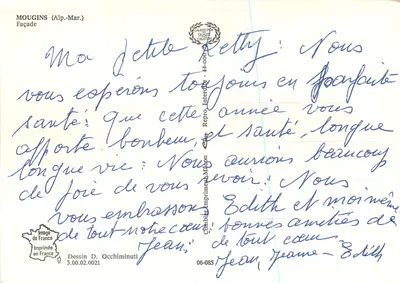 MOUGINS (Alp.-Mar.)
Façade
Ma petite Ketty : Nous
vous espérons toujours en parfaite
santé : que cette année vous
apporte bonheur, et santé, longue
longue vie : Nous aurions beaucoup
de joie de vous revoir : Nous
vous embrassons
de tout notre cœur
Jeani
Edith et moi même
bonnes amitiés de
de tout cœur
Jean, Jeanne - Edith
Image
de France
Imprimée
en France
Dessin D. Occhiminuti
3.00.02.0021
06-085